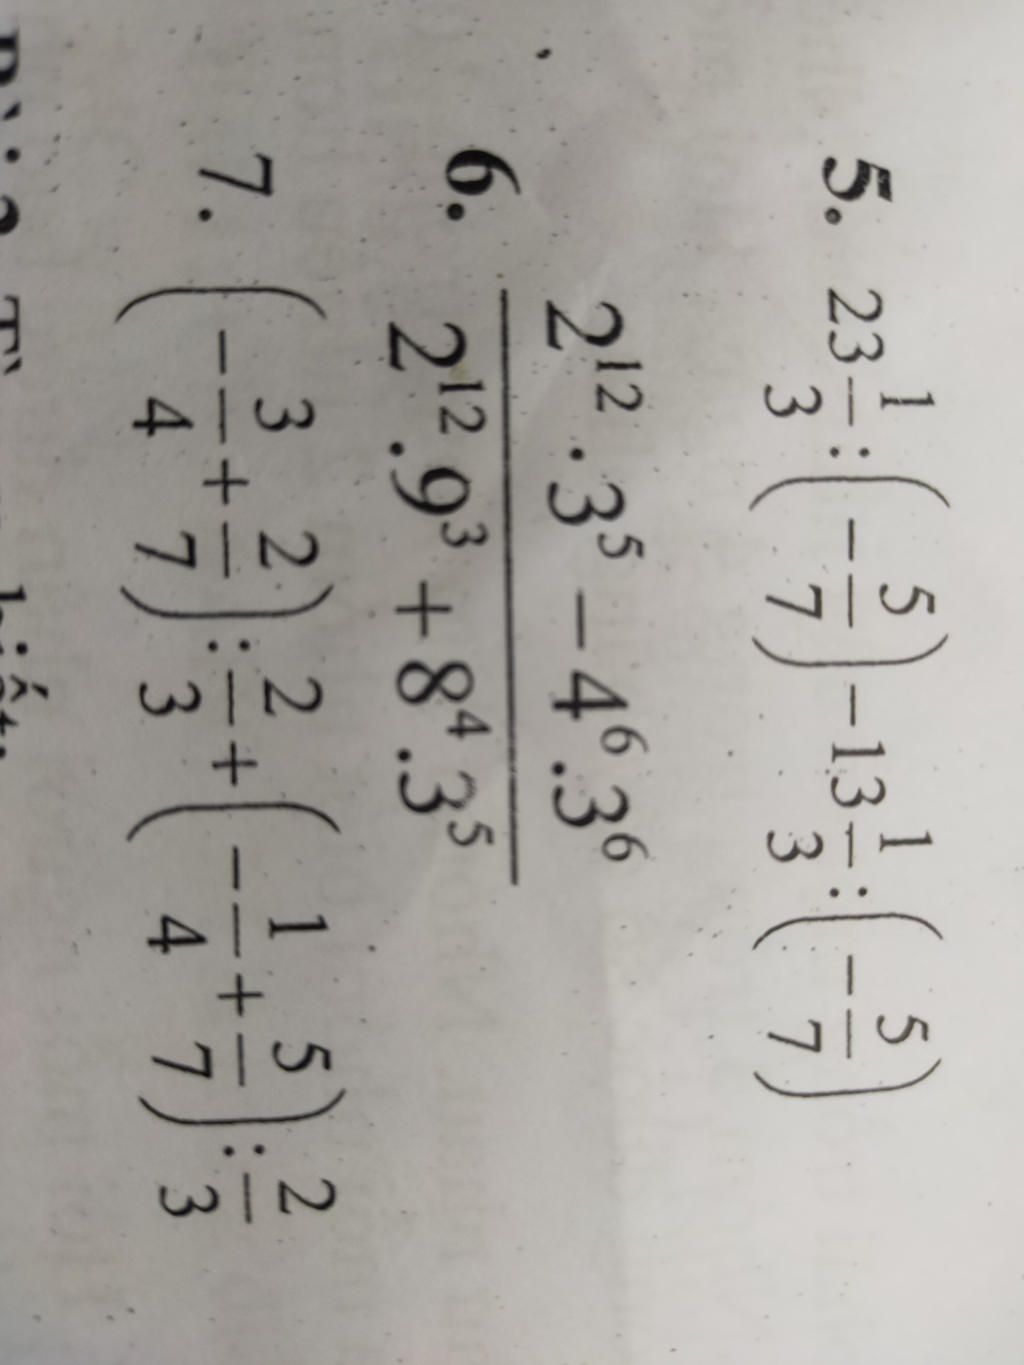 5. 23 1/3 : (− 5/7) − 13 1/3 : (− 5/7)
6. (2¹² . 3⁵ − 4⁶.3⁶) / (2¹² .9³ + 8⁴ .3⁵)
7. (− 3/4 + 2/7) : 2/3 + (− 1/4 + 5/7) : 2/3